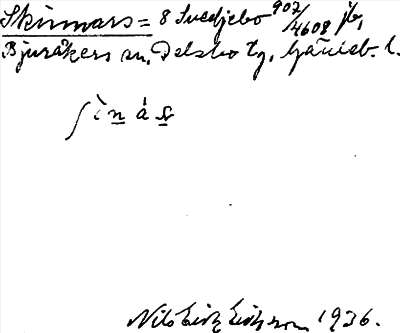 Skinnars= 8 Svedjebo 902/4608 jb,
Bjuråkers sn, Delsbo tg, Gävleb. l.
ʃìn á s̲
Nils Erik Eriksson 1936.